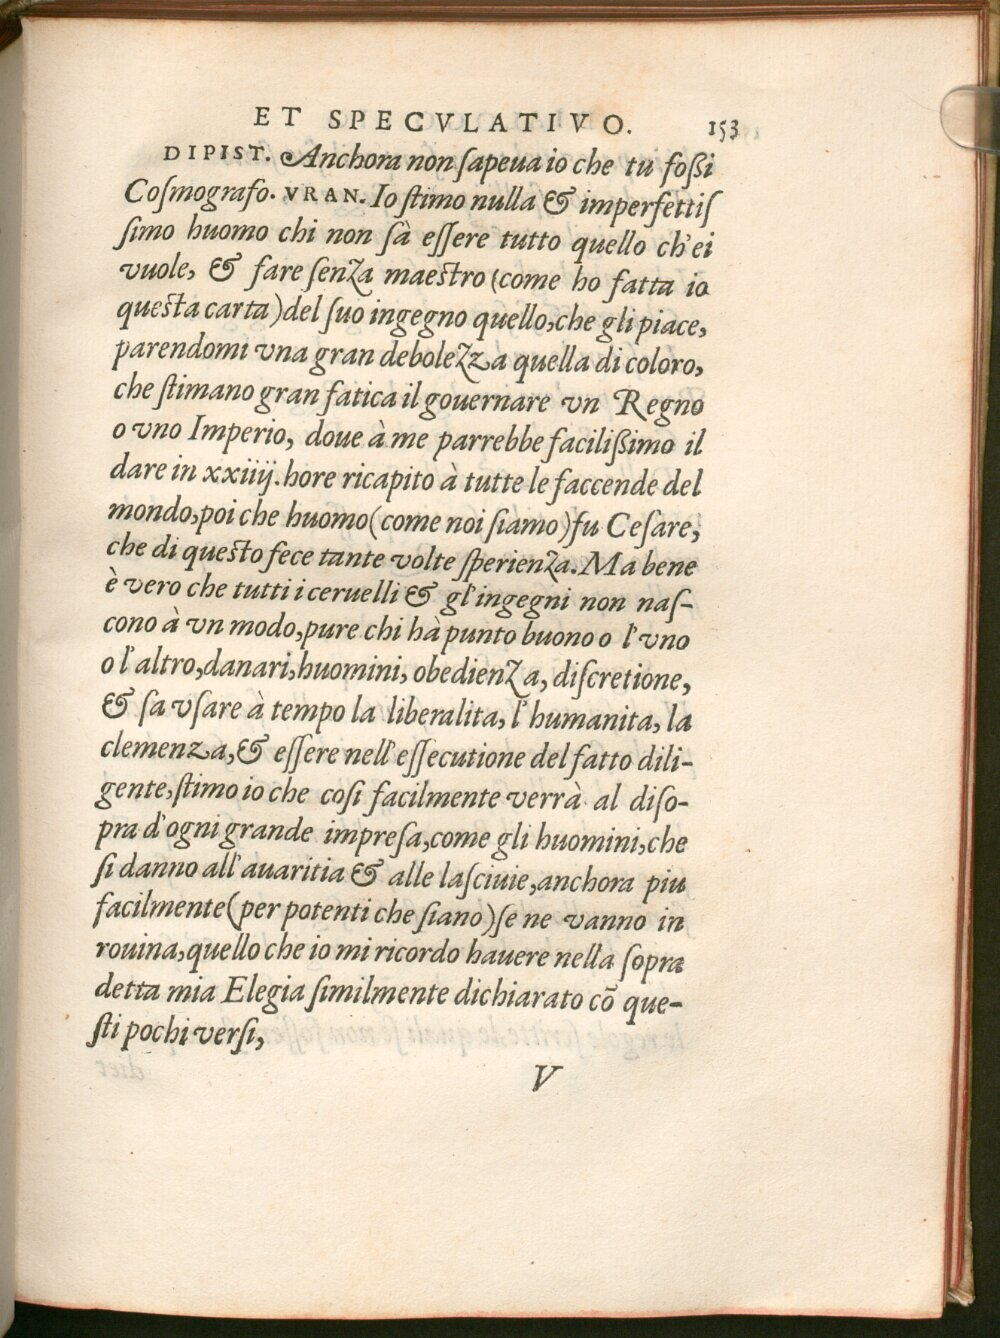 ET SPECVLATIVO. 153
DIPIST. Anchora non ſapeua io che tu foſsi
Coſmografo. VRAN. Io ſtimo nulla & imperfettiſ
ſimo huomo chi non ſà eſſere tutto quello ch'ei
vuole, & fare ſenza maeſtro (come ho fatta io
queſta carta) del ſuo ingegno quello, che gli piace,
parendomi vna gran debolezza quella di coloro,
che ſtimano gran fatica il gouernare vn Regno
o vno Imperio, doue à me parrebbe faciliſsimo il
dare in xxiiij. hore ricapito à tutte le faccende del
mondo, poi che huomo (come noi ſiamo) fu Ceſare,
che di queſto fece tante volte ſperienza. Ma bene
è vero che tutti i ceruelli & gl'ingegni non naſ-
cono à vn modo, pure chi hà punto buono o l'vno
o l'altro, danari, huomini, obedienza, diſcretione,
& ſa vſare à tempo la liberalita, l'humanita, la
clemenza, & eſſere nell'eſſecutione del fatto dili-
gente, ſtimo io che coſi facilmente verrà al diſo-
pra d'ogni grande impreſa, come gli huomini, che
ſi danno all'auaritia & alle laſciuie, anchora piu
facilmente (per potenti che ſiano) ſe ne vanno in
rouina, quello che io mi ricordo hauere nella ſopra
detta mia Elegia ſimilmente dichiarato cõ que-
ſti pochi verſi,
V